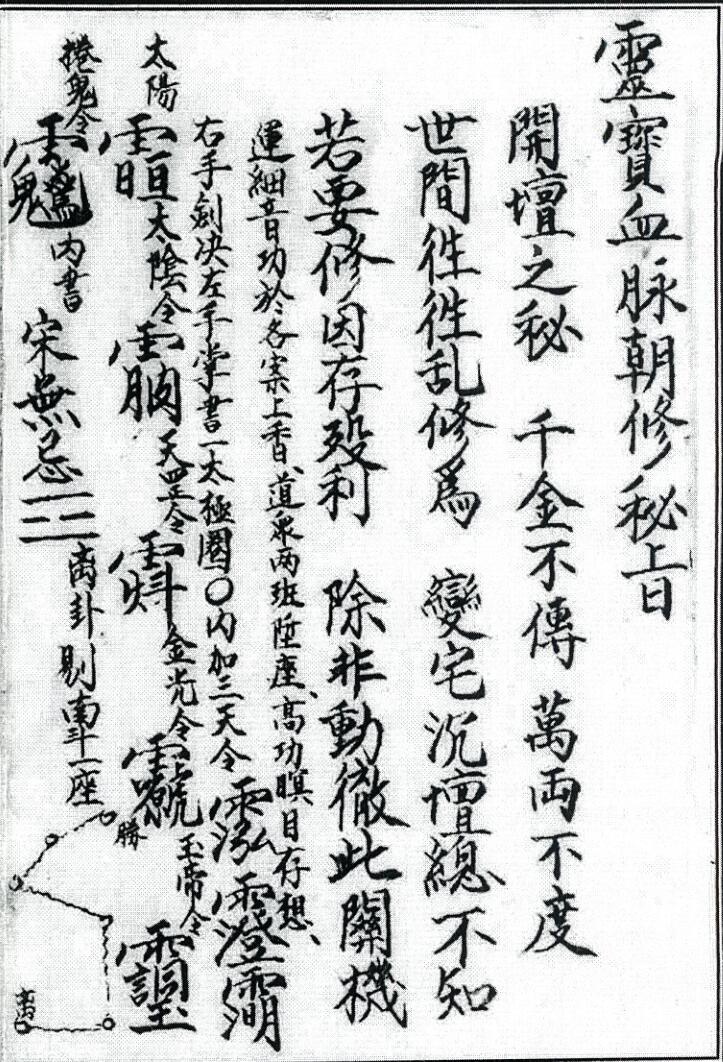 靈寶血脉朝修秘上曰
開壇之秘 千金不傳 萬両不度
世間徃徃乱修爲 變宅沉壇總不知
若要修因存殁利 除非動徹此關機
運細音功於各案上香、道衆两班陞座、高功暝目存想、
右手劍决左手掌書一太極圈〇内加三天令 䨺澄
太陽 䨴 太陰令 天罡令 金光令 玉帝令
捲鬼令 内書 宋無忌 三 离卦 剔南斗一座
勝
离